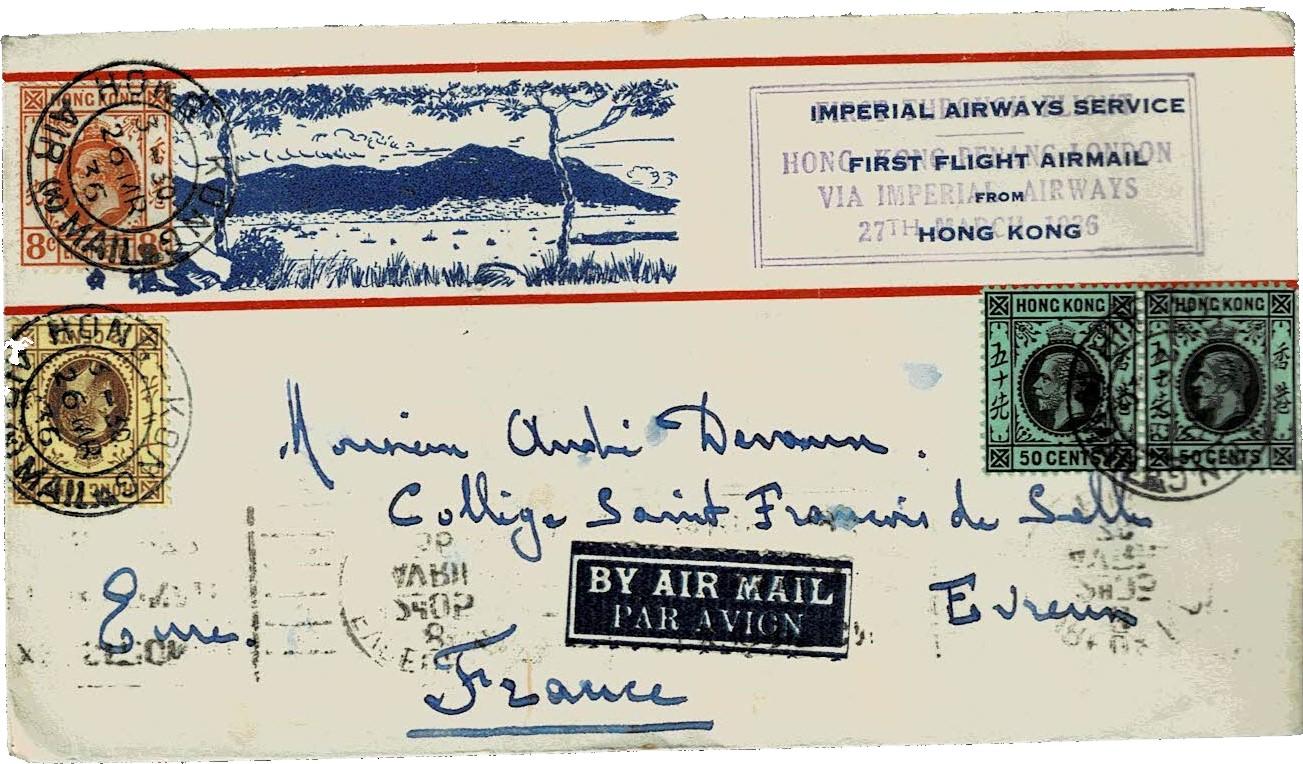 HONG KONG
8c
HONG KONG
3 - 30
26 MR
36
AIR MAIL
IMPERIAL AIRWAYS SERVICE
FIRST FLIGHT AIRMAIL
FROM
HONG KONG
HONG KONG PENANG LONDON
VIA IMPERIAL AIRWAYS
27TH MARCH 1936
HONG KONG
26 MR
36
AIR MAIL
HONG KONG
五十先
香港
50 CENTS
HONG KONG
五十先
香港
50 CENTS
Monsieur André
Collège Saint François de Salle
BY AIR MAIL
PAR AVION
Evreux
Eure.
France